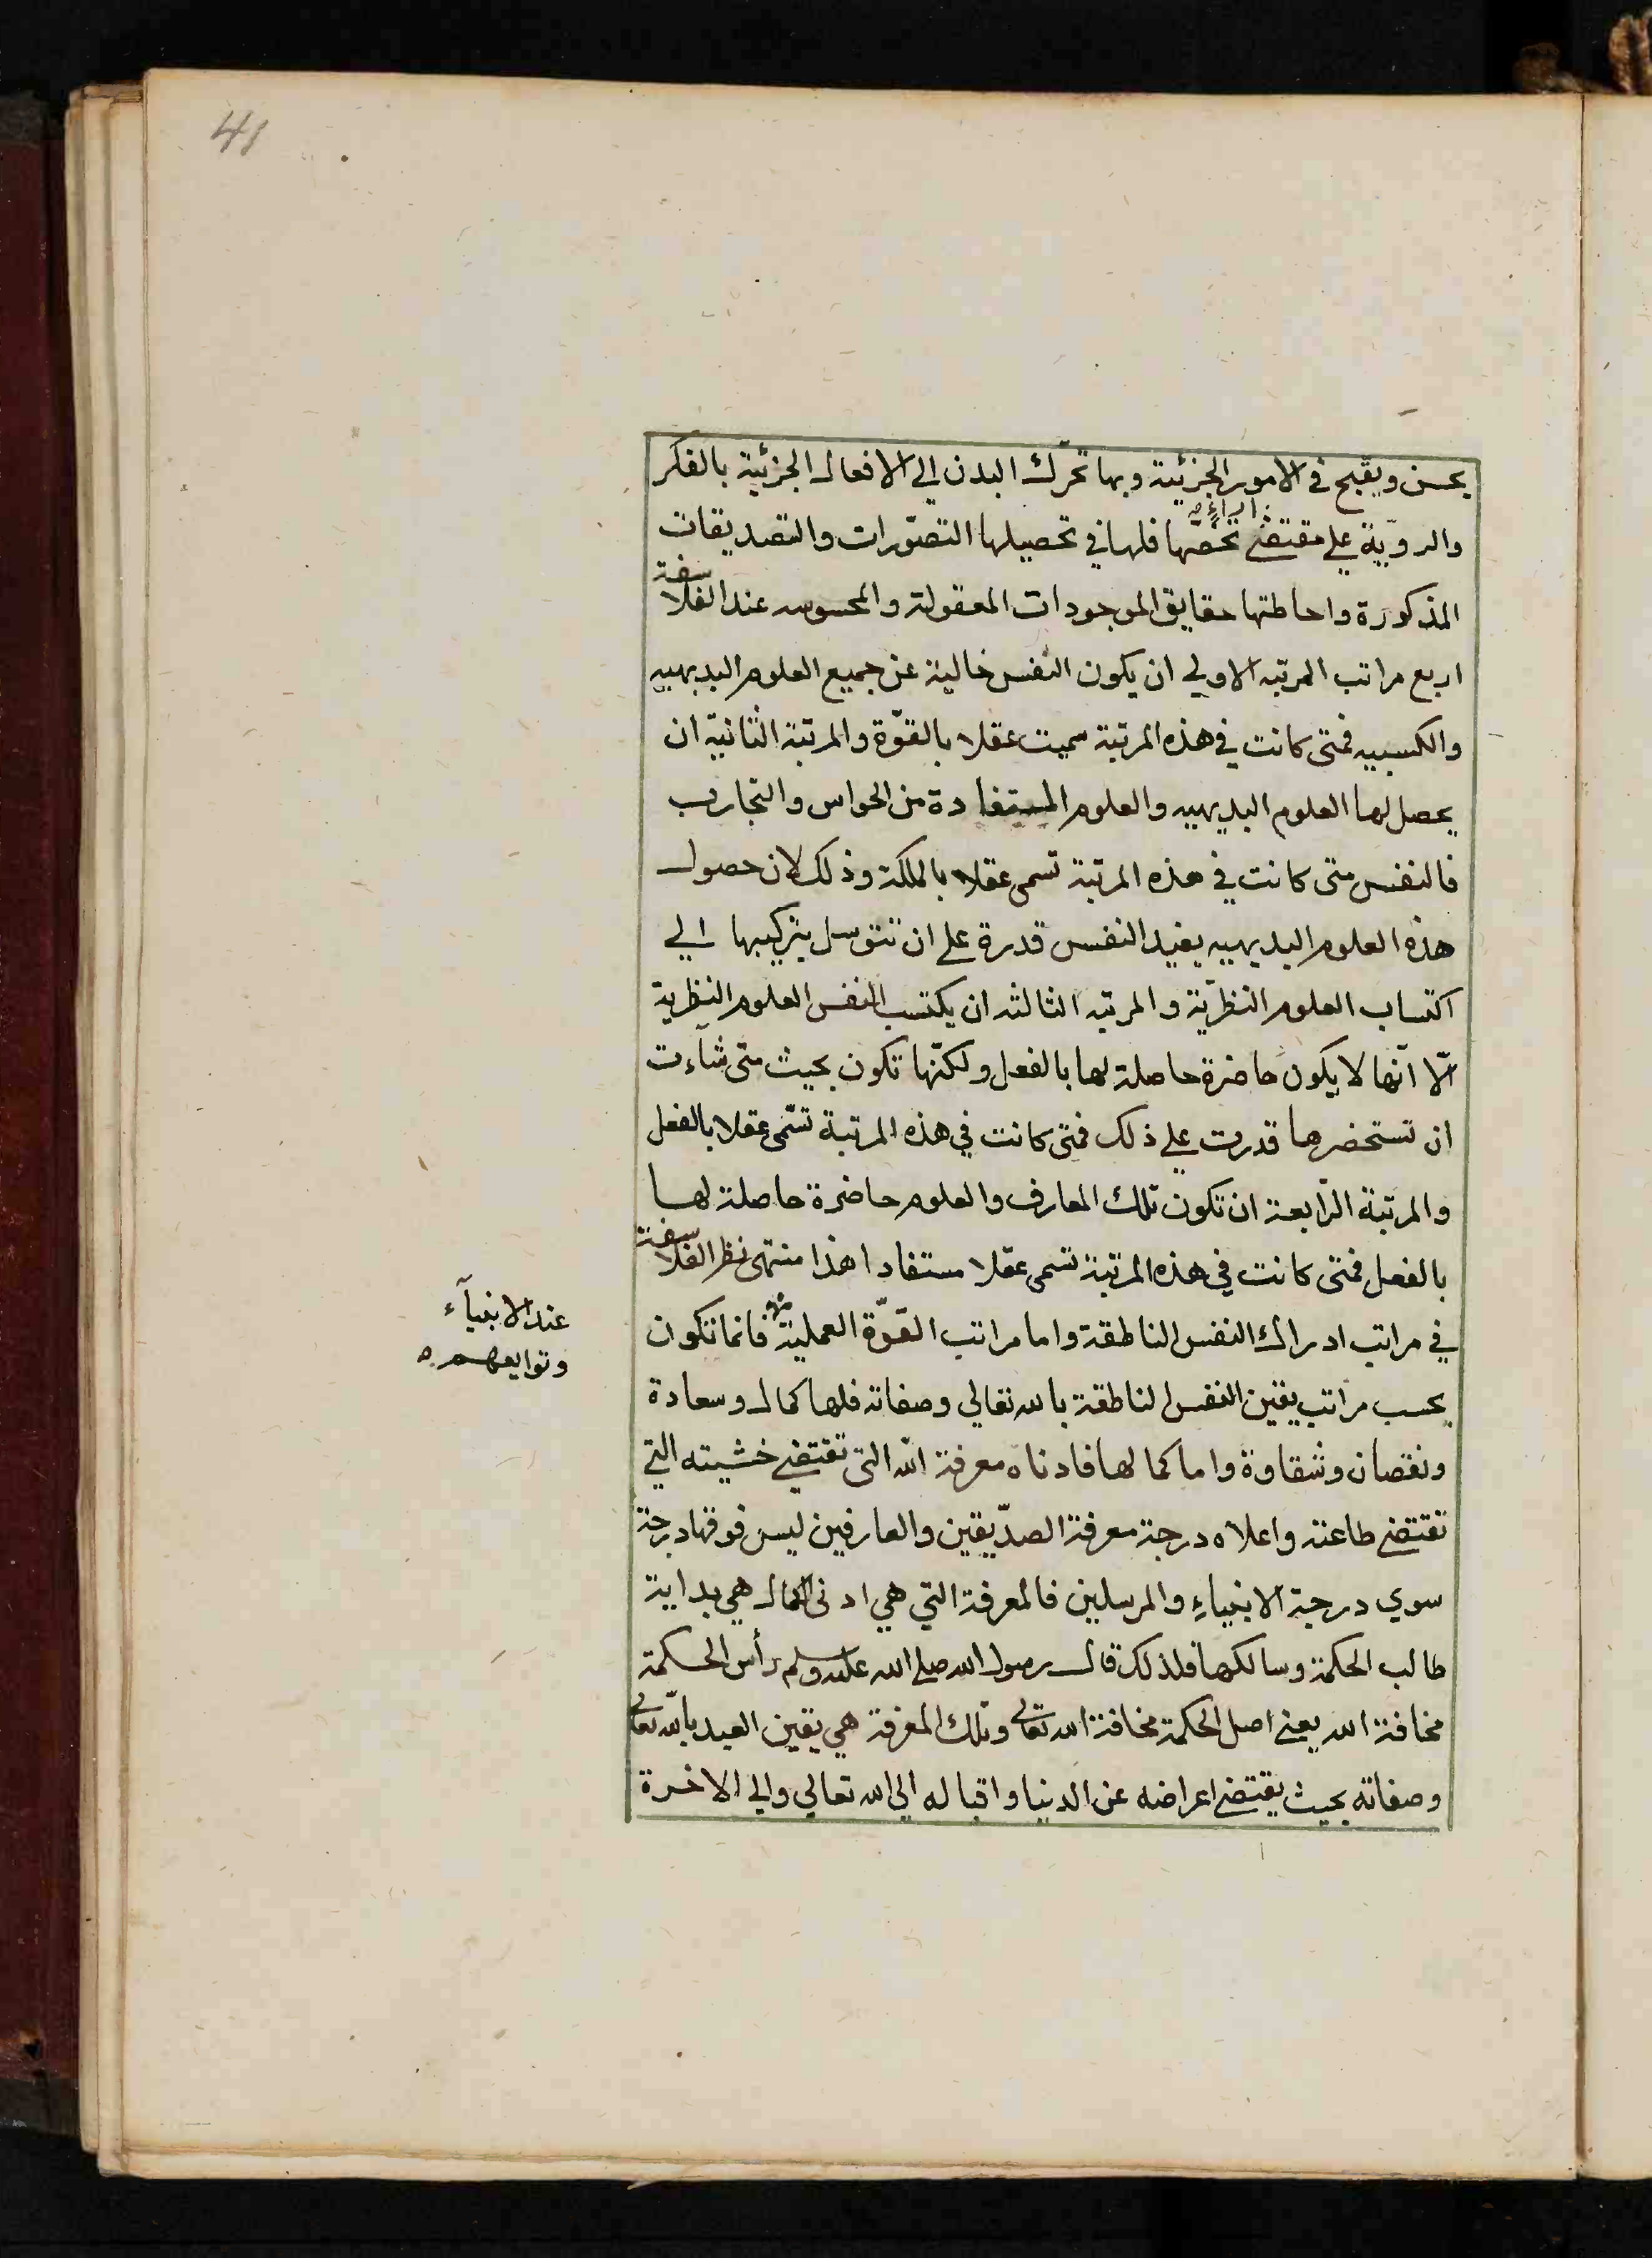 41
يحسن ويقبح في الامور الجزئية وبها تحرّك البدن الي الافعال الجزئية بالفكر
والروّية علي مقتضي اراء تخصّها فلها في تحصيلها التصوّرات والتصديقات
المذكورة واحاطتها حقايق الموجودات المعقولة والمحسوسه عند الفلاسفة
اربع مراتب المرتبه الاولي ان يكون النفس خالية عن جميع العلوم البديهيه
والكسبيه فمتى كانت في هذه المرتبة سميت عقلا بالقوّة والمرتبة الثانية ان
يحصل لها العلوم البديهيه والعلوم المستفادة من الحواس والتجارب
فالنفس متى كانت في هذه المرتبة تسمى عقلا بالملكة وذلك لان حصول
هذه العلوم البديهيه يفيد النفس قدرة علي ان تتوسل بتركيبها الي
اكتساب العلوم النظريّة والمرتبه الثالثه ان يكتسب النفس العلوم النظرية
الّا انّها لا يكون حاضرة حاصلة لها بالفعل ولكنّها تكون بحيث متى شاءت
ان تستحضرها قدرت علي ذلك فمتى كانت في هذه المرتبة تسّمى عقلا بالفعل
والمرتبة الرّابعة ان تكون تلك المعارف والعلوم حاضرة حاصلة لها
بالفعل فمتى كانت في هذه المرتبة تسمى عقلا مستفادا هذا منتهى نظر الفلاسفة
في مراتب ادراك النفس الناطقة واما مراتب القوّة العملية فانما تكون
عند الانبيآء
وتوابعهم
بحسب مراتب يقين النفس الناطقة بالله تعالي وصفاته فلها كمال وسعادة
ونقصان وشقاوة واما كمالها فادناه معرفة الله التى تقتضي خشيته التي
تقتضي طاعته واعلاه درجة معرفة الصدّيقين والعارفين ليس فوقها درجة
سوي درجة الانبياء والمرسلين فالمعرفة التي هي ادنى الكمال هي بداية
طالب الحكمة وسالكها فلذلك قال رسول الله صلي الله عليه وسلم رأس الحكمة
مخافة الله يعني اصل الحكمة مخافة الله تعالى وتلك المعرفة هي يقين العبد بالله تعالى
وصفاته بحيث يقتضي اعراضه عن الدنيا واقباله الي الله تعالي والي الاخرة